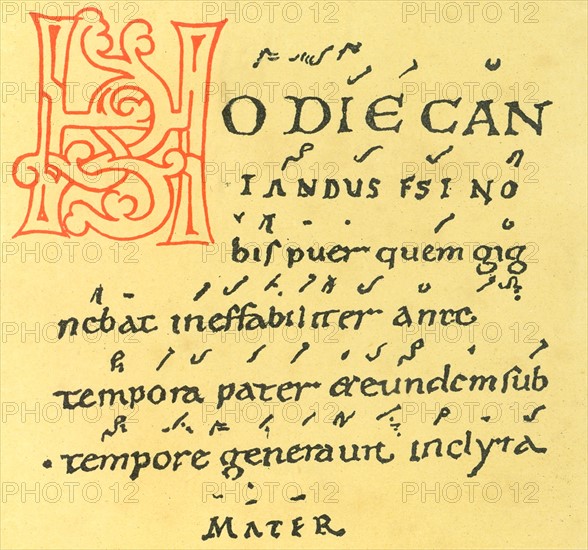 HODIE CAN
IANDUS ESI NO
bis puer quem gig
nebat ineffabiliter ante
tempora pater & eundem sub
·tempore generauit inclyta
MATER